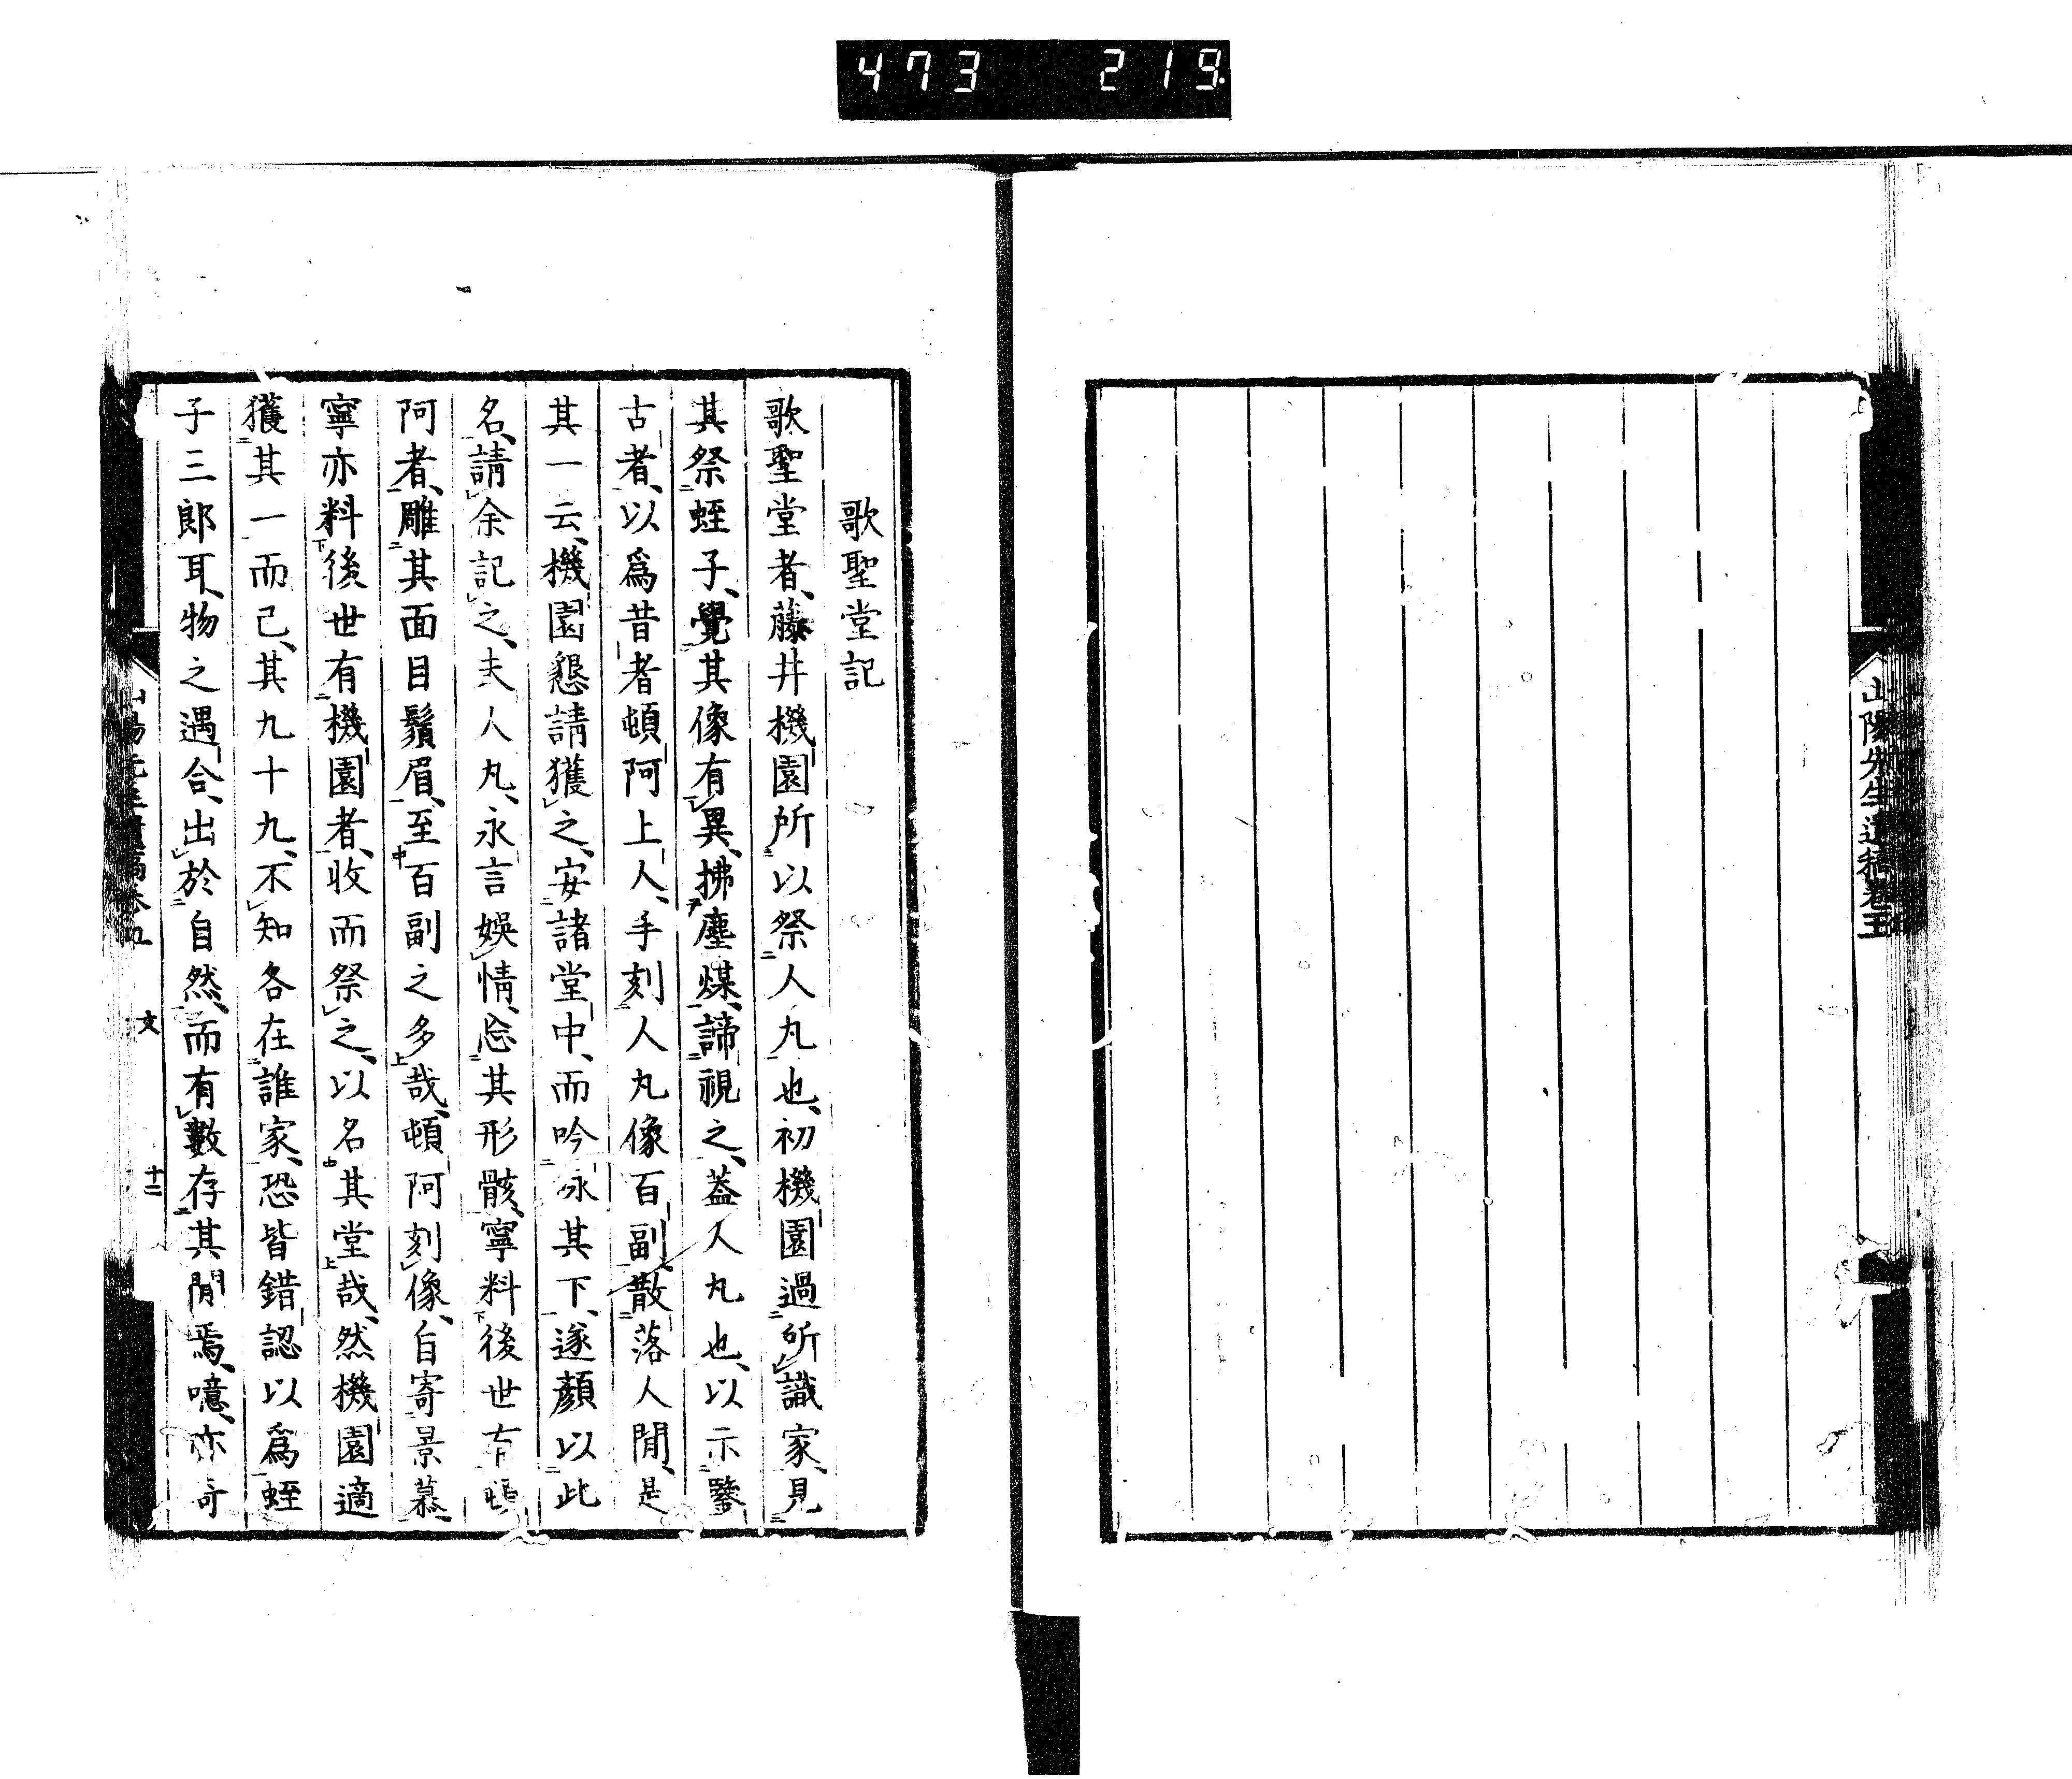 473 219
山陽先生遺稿卷五
歌聖堂記
歌聖堂者、藤井機園所以祭人丸也、初機園過所識家、見
其祭蛭子、覺其像有異、拂塵煤、諦視之、蓋人丸也、以示鑒
古者、以爲昔者頓阿上人、手刻人丸像百副、散落人間、是
其一云、機園懇請獲之、安諸堂中、而吟詠其下、遂顏以此
名、請余記之、夫人丸、永言娛情、忘其形骸、寧料後世有頓
阿者、雕其面目鬚眉、至百副之多哉、頓阿刻像、自寄景慕、
寧亦料後世有機園者、收而祭之、以名其堂哉、然機園適
獲其一而已、其九十九、不知各在誰家、恐皆錯認以爲蛭
子三郎耳、物之遇合、出於自然、而有數存其間焉、噫、亦奇
山陽先生遺稿卷五 文 十二